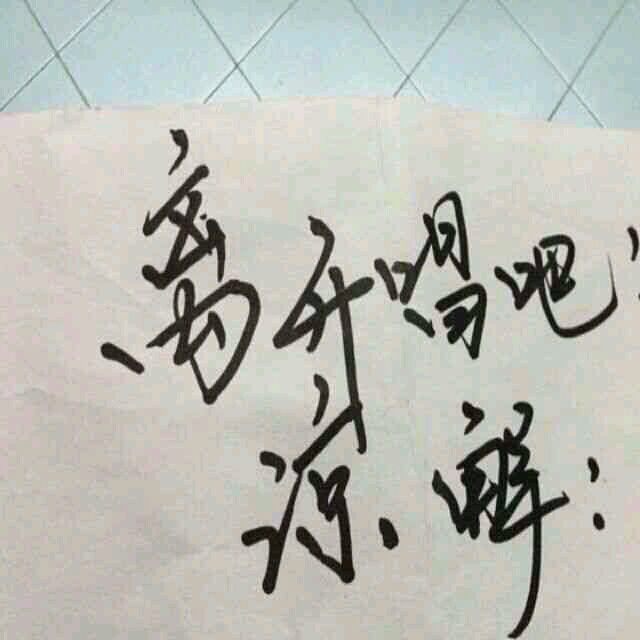 离开唱吧!
谅解!